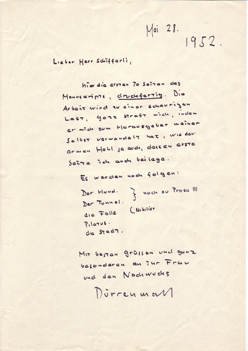 Mai 28.
1952.
Lieber Herr Schifferli,
hier die ersten 70 Seiten des
Manuscripts, druckfertig. Die
Arbeit wird zu einer schaurigen
Last, Gott straft mich, indem
er mich zum Herausgeber meiner
Selbst verwandelt hat, wie der
armen Hohl ja auch, dessen erste
Seite ich auch beilege.
Es werden noch folgen:
Der Hund.
Der Tunnel. noch zu Prosa III
die Falle
Pilatus.
die Stadt.
Mit besten Grüssen und ganz
besonderen an ihr Frau
und den Nachwuchs
Dürrenmatt